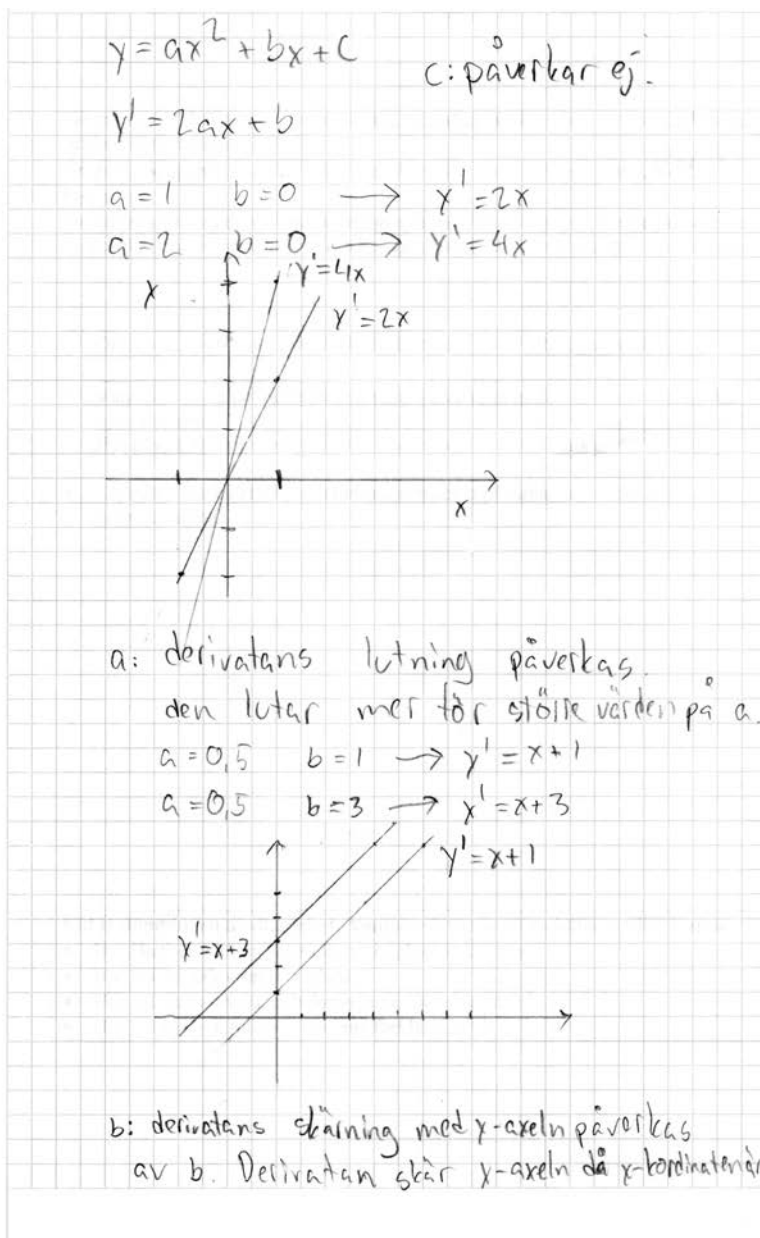 y = ax² + bx + c
c: påverkar ej.
y' = 2ax + b
a = 1 b = 0 → y' = 2x
a = 2 b = 0 → y' = 4x
y
y' = 4x
y' = 2x
x
a: derivatans lutning påverkas.
den lutar mer för större värden på a.
a = 0,5 b = 1 → y' = x + 1
a = 0,5 b = 3 → y' = x + 3
y' = x + 1
y' = x + 3
b: derivatans skärning med y-axeln påverkas
av b. Derivatan skär y-axeln då y-kordinaten är